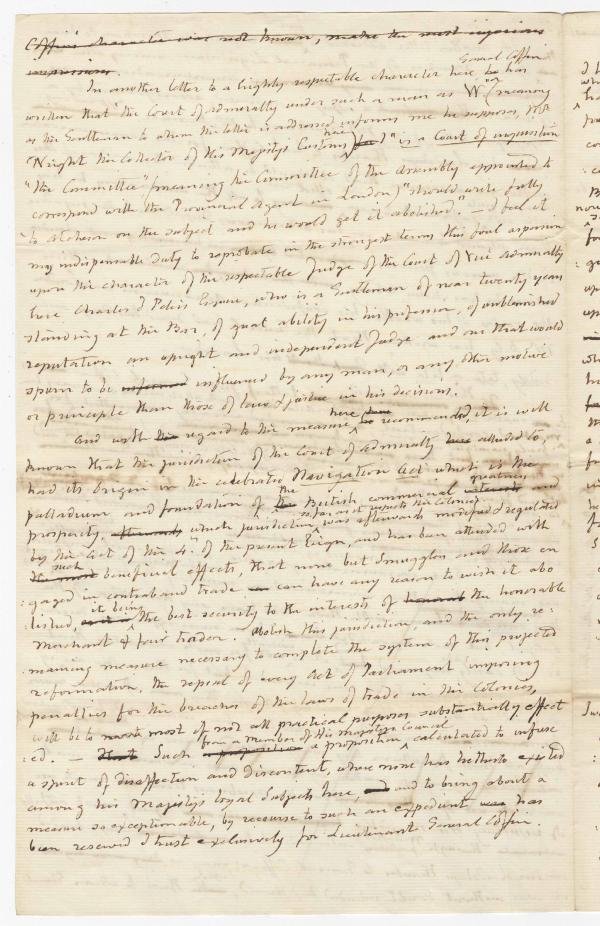 Coffin's character were not known, make the most injurious
impressions.
In another letter to a highly respectable character here, he General Coffin has
written that "the Court of Admiralty under such a man as W (meaning
as the Gentleman to whom the letter is addressed informs me he supposes, Mr
Wright the Collector of His Majestys Customs here) is a Court of inquisition
"the Committee" (meaning the Committee of the Assembly appointed to
correspond with the Provincial Agent in London) "should write fully
to on the subject and he would get it abolished". – I feel it
my indispensable duty to reprobate in the strongest terms this foul aspersion
upon the character of the respectable Judge of the Court of Vice Admiralty
here Charles J Peters Esquire, who is a Gentleman of near twenty years
standing at the Bar, of great ability in his profession, of unblemished
reputation an upright and independent Judge and one that would
spurn to be informed influenced by any man, or any other motive
or principle than those of law & justice in his decisions.
And with regard to the measure here recommended, it is well
known that the jurisdiction of the Court of Admiralty here alluded to,
had its origin in the celebrated Navigation Act which is the
palladium and foundation of the British commercial interests greatness and
prosperity, afterwards which jurisdiction so far as it respects the Colonies was afterwards modified & regulated
by the Act of the 4th of the present Reign, and has been attended with
the most such beneficial effects, that none but Smugglers and those en
:gaged in contraband trade can have any reason to wish it abo
:lished, as it is it being the best security to the interests of the honorable
Merchant & fair trader. Abolish this jurisdiction, and the only re:
:maining measure necessary to complete the system of this projected
reformation, the repeal of every Act of Parliament imposing
penalties for the breaches of the laws of trade in the Colonies,
will be to most if not all practical purposes substantially effect
:ed. – That Such a proposition from a member of His Majestys Council a proposition calculated to infuse
a spirit of disaffection and discontent, where none has hitherto existed
among his Majestys loyal Subjects here, and and to bring about a
measure so exceptionable, by recourse to such an expedient was has
been reserved I trust exclusively for Lieutenant General Coffin.